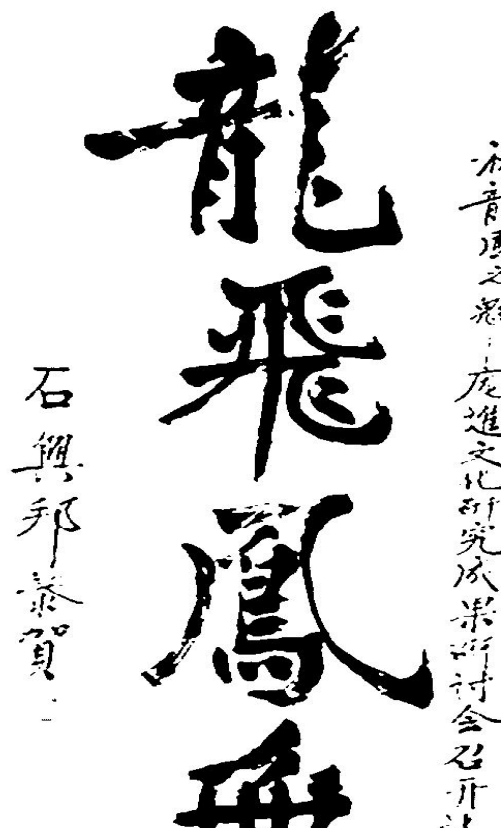 祝龍鳳之魂:庞進文化研究成果研讨会召开
龍飛鳳舞
石興邦恭賀